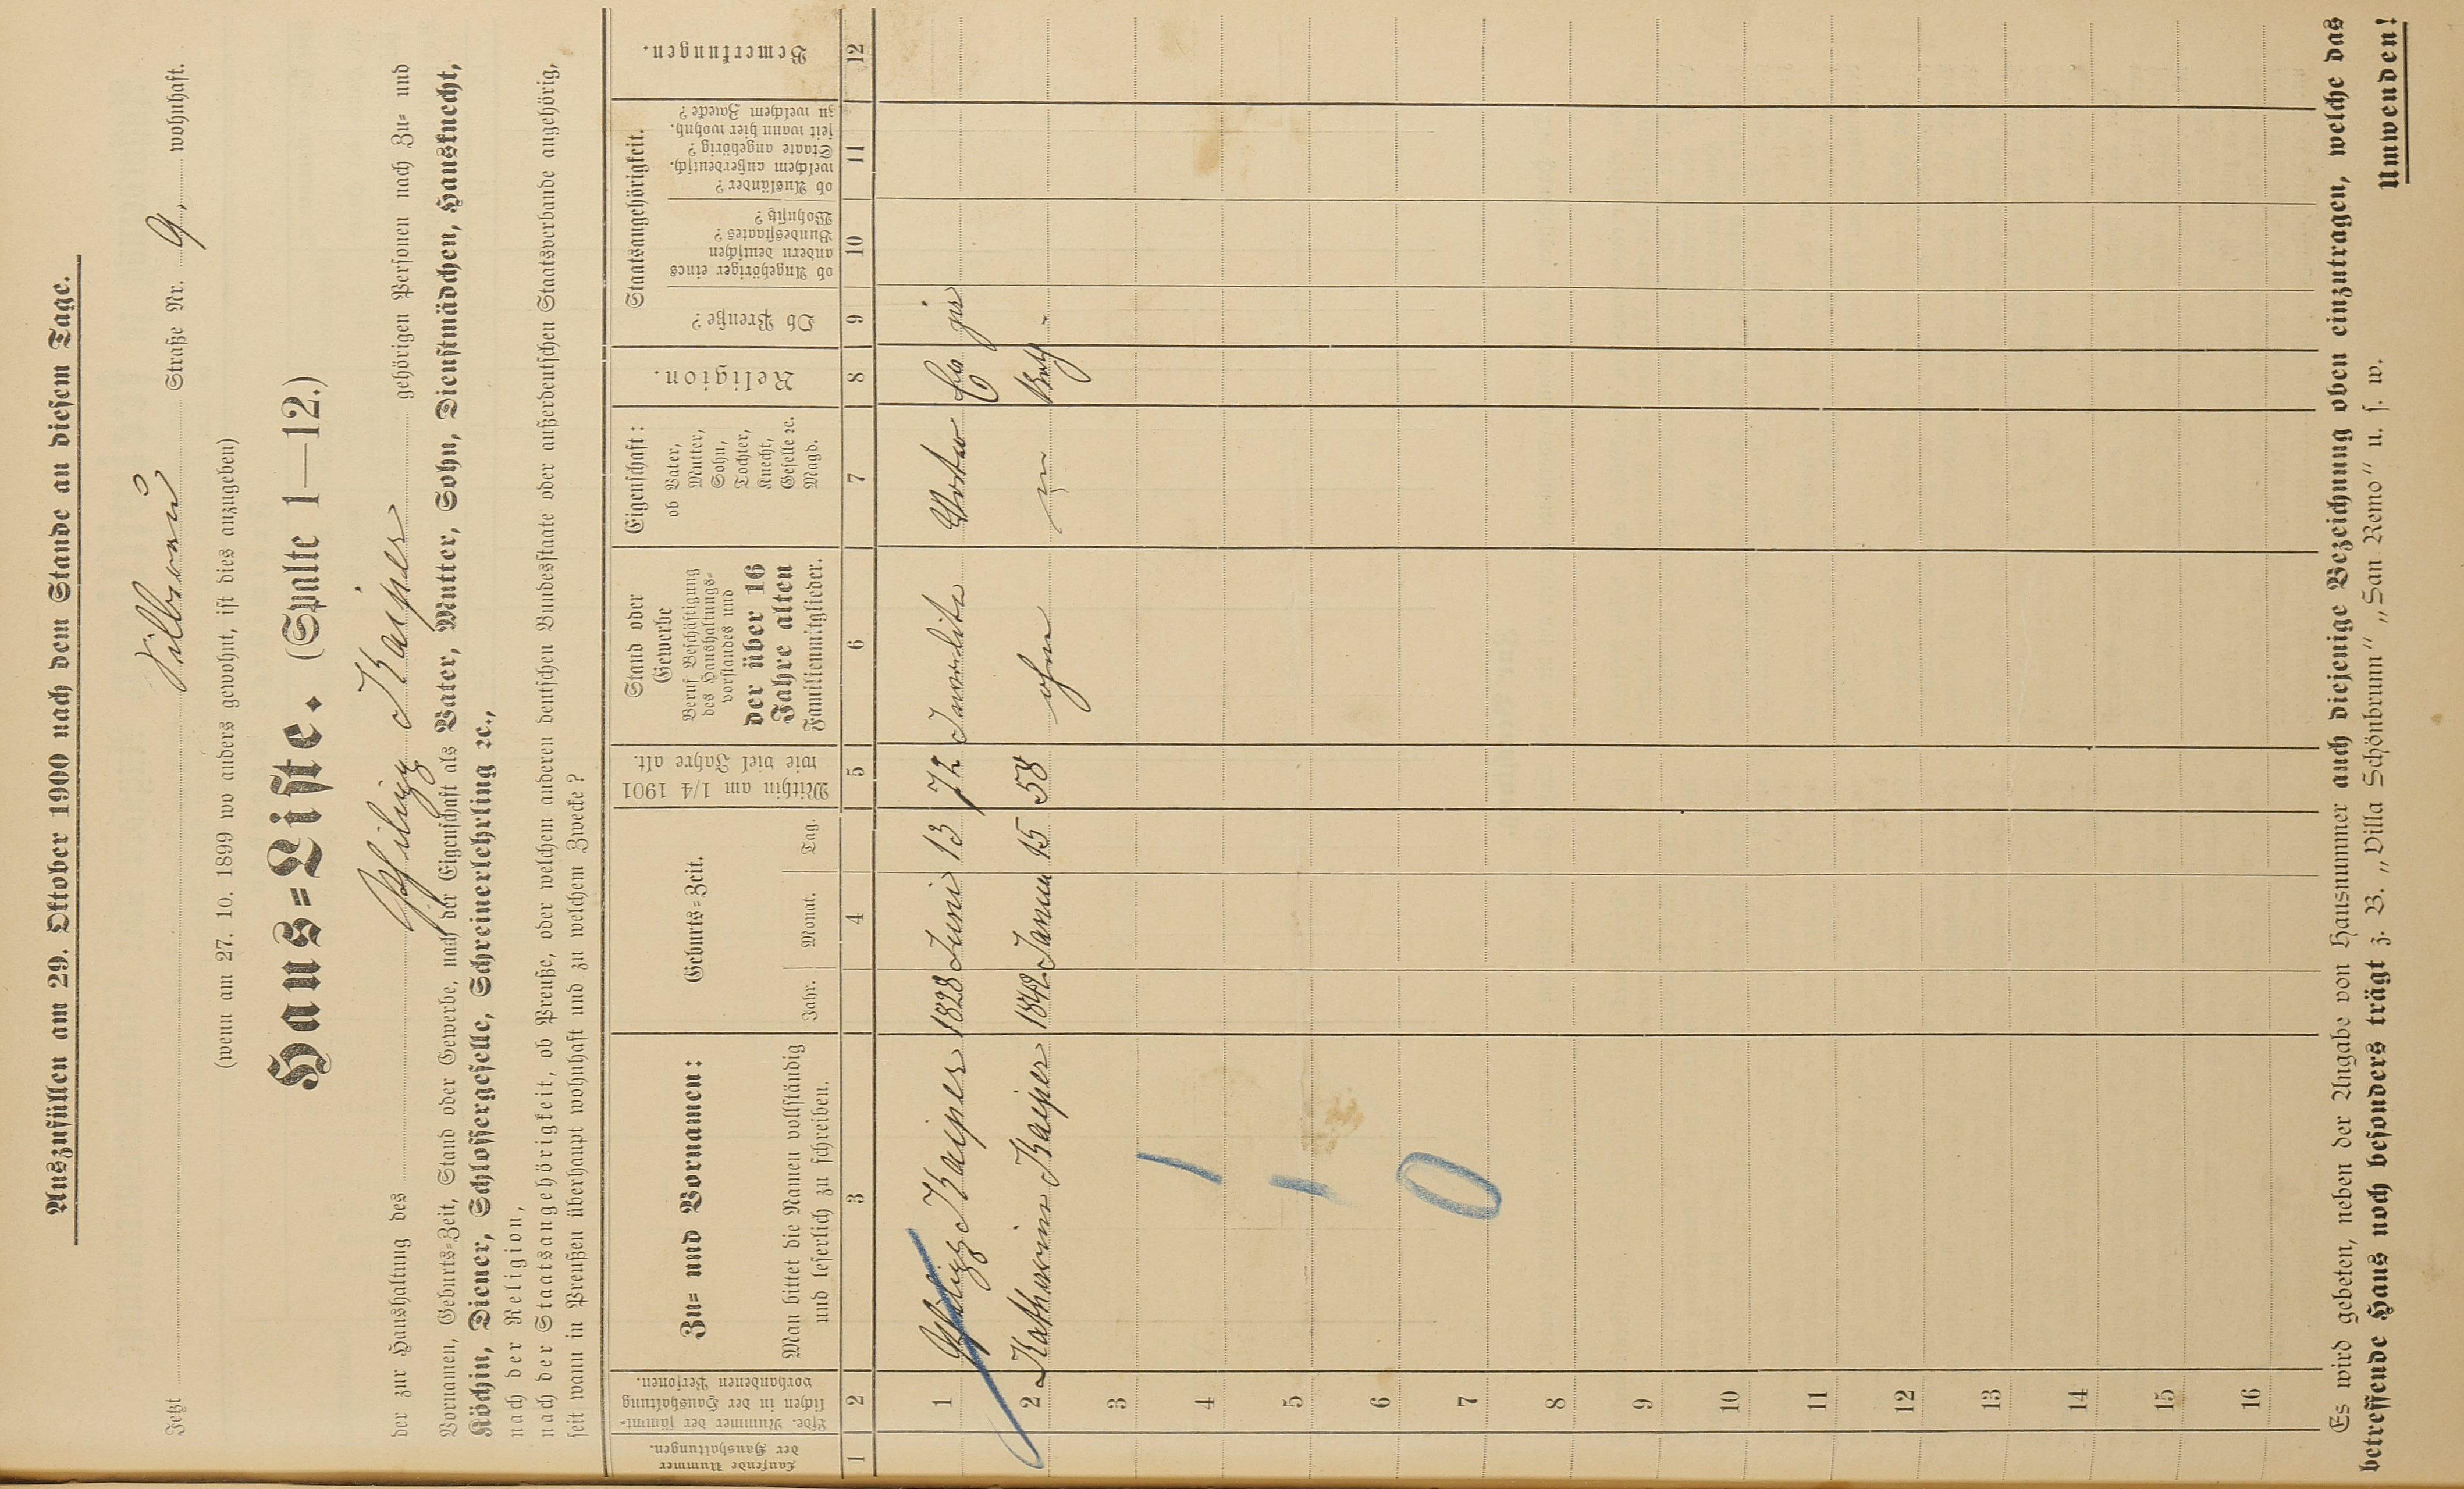 Auszufüllen am 29. Oktober 1900 nach dem Stande an diesem Tage.
Jetzt Straße Nr. 9, wohnhaft.
(wenn am 27. 10. 1899 wo anders gewohnt, ist dies anzugeben)
Haus=Liste. (Spalte 1—12.)
der zur Haushaltung des Philipp Kaiper gehörigen Personen nach Zu= und
Vornamen, Geburts=Zeit, Stand oder Gewerbe, nach der Eigenschaft als Vater, Mutter, Sohn, Dienstmädchen, Hausknecht,
Köchin, Diener, Schlossergeselle, Schreinerlehrling ꝛc.,
nach der Religion,
nach der Staatsangehörigkeit, ob Preuße, oder welchem anderen deutschen Bundesstaate oder außerdeutschen Staatsverbande angehörig,
seit wann in Preußen überhaupt wohnhaft und zu welchem Zwecke?
Laufende Nummer
der Haushaltungen.
Lfde. Nummer der sämmt=
lichen in der Haushaltung
vorhandenen Personen.
Zu= und Vornamen:
Man bittet die Namen vollständig
und leserlich zu schreiben.
Geburts=Zeit.
Jahr. Monat. Tag.
Mithin am 1/4 1901
wie viel Jahre alt.
Stand oder
Gewerbe
Beruf Beschäftigung
des Haushaltungs=
vorstandes und
der über 16
Jahre alten
Familienmitglieder.
Eigenschaft:
ob Vater,
Mutter,
Sohn,
Tochter,
Knecht,
Geselle ꝛc.
Magd.
Religion.
Staatsangehörigkeit.
Ob Preuße?
ob Angehöriger eines
andern deutschen
Bundesstaates?
Wohnsitz?
ob Ausländer?
welchem außerdeutsch.
Staate angehörig?
seit wann hier wohnh.
zu welchem Zwecke?
Bemerkungen.
1 2 3 4 5 6 7 8 9 10 11 12
1 Philipp Kaiper 1828 Juni 13 72 Invalide Vater Ev
2 Katharina Kaiper 1842 Januar 15 58 ohne
3
4
5
6
7
8
9
10
11
12
13
14
15
16
Es wird gebeten, neben der Angabe von Hausnummer auch diejenige Bezeichnung oben einzutragen, welche das
betreffende Haus noch besonders trägt z. B. „Villa Schönbrunn“ „San Remo“ u. s. w.
Umwenden!